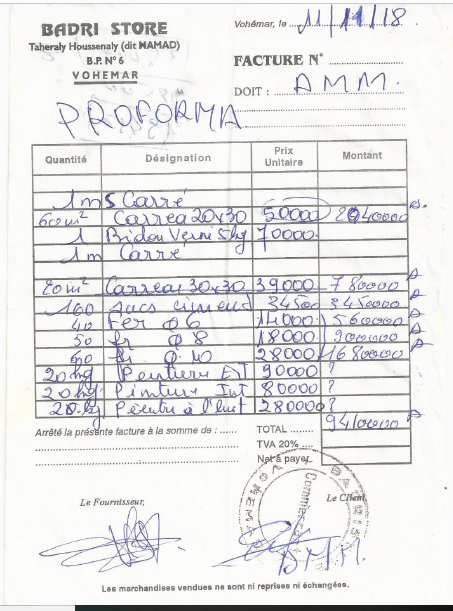 BADRI STORE
Taheraly Houssenaly (dit MAMAD)
B.P. N° 6
VOHEMAR
Vohémar, le 11/11/18
FACTURE N°
DOIT : AMM.
PROFORMA
Quantité Désignation Prix Unitaire Montant
1m Carré
60m² Carreau 20x30 50000
1 Bidon Verni 5kg 70000
1m Carré
20m² Carreau 30x30 39000 780000
100 sacs ciment 34500 3450000
40 Fer φ 6 14000 560000
50 fr φ 8 18000 900000
60 fr φ 10 28000 1680000
20kg Peinture 90000 ?
20kg Peinture Int 80000 ?
20kg 280000 ?
Arrêté la présente facture à la somme de : ......
TOTAL ........ 9410000
TVA 20% ....
Net à payer
Le Fournisseur,
Le Client
AMM.
Les marchandises vendues ne sont ni reprises ni échangées.